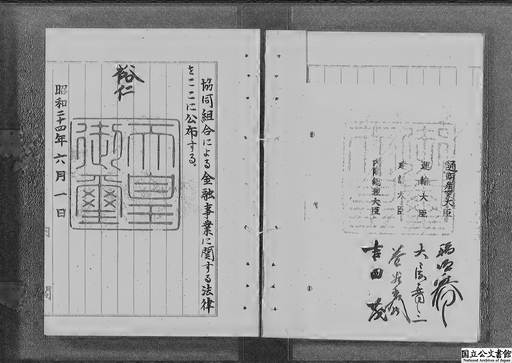 協同組合による金融事業に関する法律
をここに公布する。
裕仁
天皇
御璽
昭和二十四年六月一日
内閣
通商産業大臣
運輸大臣 大屋晋三
建設大臣 益谷秀次
内閣総理大臣 吉田茂
国立公文書館
National Archives of Japan